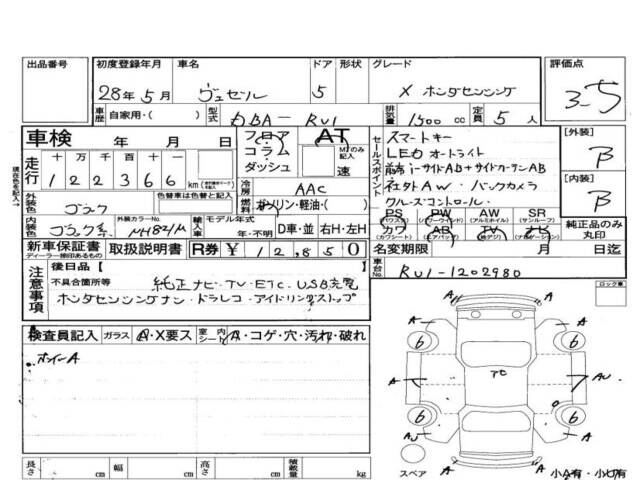 出品番号 初度登録年月 車名 ドア 形状 グレード 評価点
28年5月 ヴェゼル 5 X ホンダセンシング 3.5
車歴 自家用・( ) 型式 DBA- RU1 排気量 1500 cc 定員 5 人
車検 年 月 日 フロア AT セールスポイント スマートキー [外装]
走行 十万千百十 コラム MTのみ記入 LEDオートライト B
122366 km ダッシュ 速 i-サイドAB+サイドカーテンAB [内装]
外装色 ブラック 色替車は色替と記入 冷房 AAC 社外AW・バックカメラ B
元色 燃料 ガソリン・軽油・( ) クルーズコントロール・
内装色 ブラック系 外装カラーNo. 輸入車 モデル年式 PS PW AW SR 純正品のみ丸印
年・不明 D車・並 右H・左H カワ AB TV ナビ
新車保証書 取扱説明書 R券 ¥ 12,850 名変期限 月 日迄
ディーラー捺印あるもの
車台No. RU1-1202980
注意事項 後日品 [ ]
不具合箇所等 純正ナビ・TV・ETC・USB充電
ホンダセンシングナシ・ドラレコ・アイドリングストップ
ロック車
検査員記入 ガラス A・X要ス 室内 シート A・コゲ・穴・汚れ・破れ
A
A A
6 6
A アセ AU
6 6
AU A
長さ cm 幅 cm 高さ cm 積載量 kg スペア 小A有・小U有
現在色を記入→